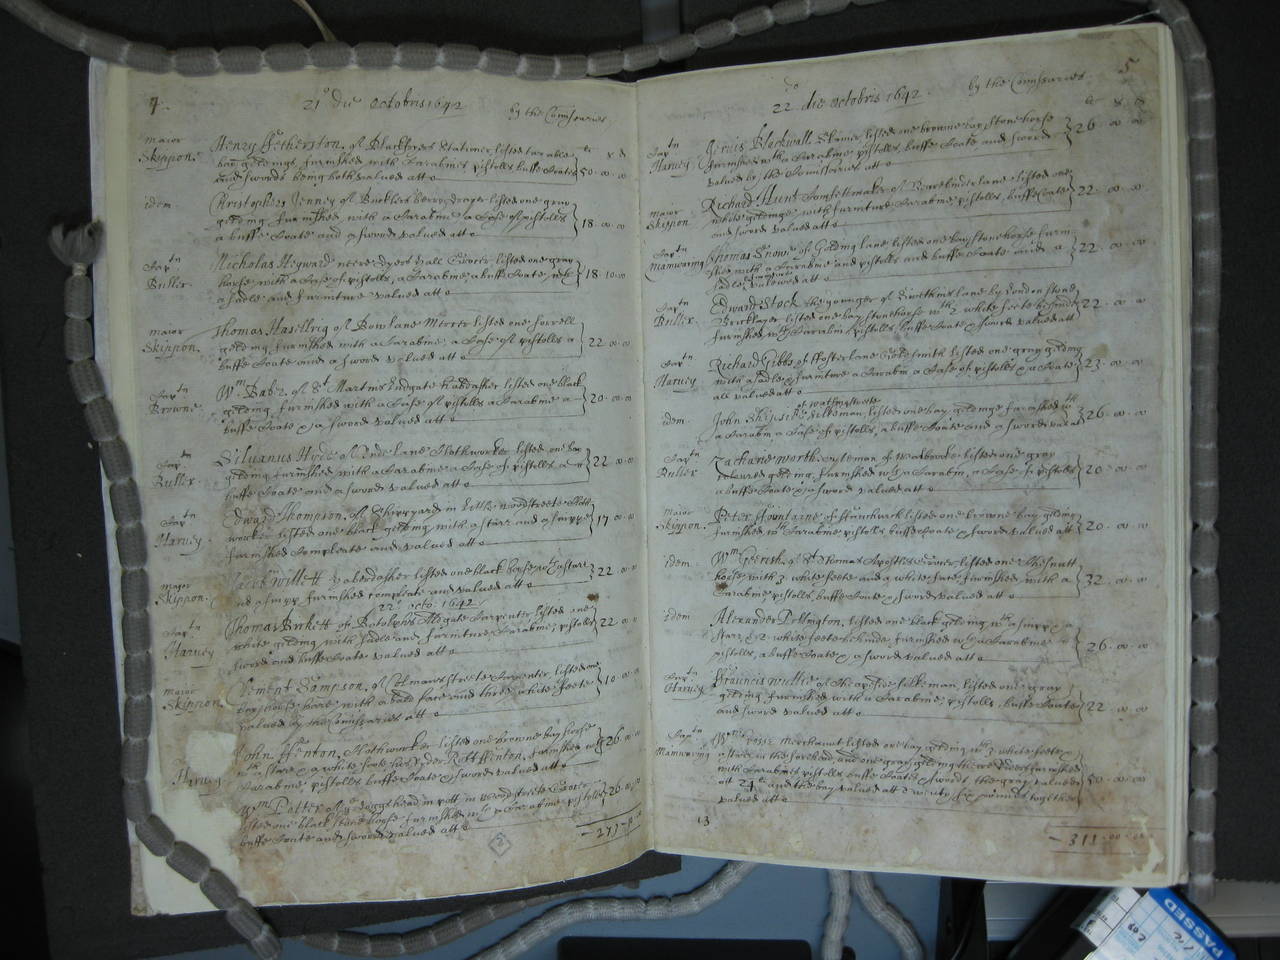 4.
21° die Octobris 1642 by the Comissaries
Maior Skippon.
Henry Hetherston. of Blackfryers Stationer listed two able
geldings, furnished with Carabines pistolls buffe Coates
and swords being both valued att 50-00-00
idem.
Christopher Denney of Bucklersberry draper listed one gray
gelding, furnished with a Carabine, a Case of pistolls
a buffe Coate and a sword valued att 18-00-00
Captn Buller
Nicholas Heyward neere dyers hall listed one gray
horse with a Case of pistolls, a Carabine, a buffe Coate,
a sadle and furniture valued att 18-10-00
maior Skippon.
Thomas Hasellrig of Bow lane Mercer listed one sorrell
gelding, furnished with a Carabine, a Case of pistolls a
buffe Coate and a sword valued att 22-00-00
Captn Browne.
Wm of St Martins Ludgate Haberdasher listed one black
gelding, furnished with a Case of pistolls a Carabine a
buffe Coate & a sword valued att 20-00-00
Captn Buller
Silvanus Hyde of lane Clothworker listed one bay
gelding furnished with a Carabine a Case of pistolls a
buffe Coate and a sword valued att 22-00-00
Captn Harvey
Edward Thompson. of Shippyard in Little woodstreete Cloth
worker listed one black gelding with a starr and a snippe
furnished Compleate and valued att 17-00-00
maior Skippon.
Jacob Willett haberdasher listed one black horse wth a starr
and a snipp furnished compleate and valued att 22-00-00
22° octo: 1642
Captn Harvey
Thomas Birkett of Botolphs Algate Carpenter listed one
white gelding with sadle and furniture, Carabine, pistolls
sword and buffe Coate valued att 22-00-00
maior Skippon
Clement Sampson, of Colmanstreete Carpenter listed one
bay horse with a bald face and three white feete
valued by the Comissaries att 10-00-00
Harvey
John Fenton, Clothworker listed one browne bay horse
wth a starr & a white foote his ryder Robt Hinton, furnished wth
Carabine, pistolls buffe Coate & sword valued att 26-00-00
Wm Potter of ye doggs head in pott in Woodstreete
listed one black stone horse furnished wth a Carabine pistolls
buffe Coate and sword valued att 26-00-00
2
5
22do die octobris 1642. by the Comissaries
li s d
Captn Harvey
Gervis Blockwall Skinner listed one browne bay stone horse
furnished wth Carabine pistolls, buffe Coate and sword
valued by the Comissaries att 26-00-00
maior Skippon
Richard Hunt Comfettmaker of Bearebinderlane listed one
white geldinge with furniture, Carabine pistolls, buffe Coate
and sword valued att 22-00-00
Captn Manwaring
Thomas Browne of Golding lane listed one bay stone horse furni
shed with a Carabine and pistolls and buffe Coate and a
sadle, valewed att 22-00-00
Captn Buller
Edward Stock the younger of Swethins lane by London stone
Bricklayer listed one bay stone horse wth 2 white feete behinde
furnished wth Carabin, pistolls, buffe Coate & sword valued att 22-00-00
Captn Harvey
Richard Gibbs of Foster lane Goldsmith listed one gray gelding
with a sadle & furniture a Carabin a Case of pistolls & a Coate
all valued att 23-00-00
idem.
of watlinstreete
John Skipsith silkeman, listed one bay geldinge furnished wth
a Carabin, a Case of pistolls, a buffe Coate and a sword valued 26-00-00
Captn Buller
Zacharie worth, of woodstreete listed one gray
coloured gelding, furnished wth a Carabin, a Case of pistolls
a buffe Coate & a sword valued att 20-00-00
Maior Skippon.
Peter Fountaine of Southwark listed one browne bay gelding
furnished wth Carabine pistolls buffe Coate & sword valued att 20-00-00
idem.
Wm of St Thomas Apostles listed one Chesnutt
horse, with 3 white feete and a white face, furnished with a
Carabine, pistolls, buffe Coate & a sword valued att 32-00-00
Idem
Alexander Pollington, listed one black gelding wth a snipp & a
starr, & 2 white feete behinde, furnished wth a Carabine
pistolls, a buffe Coate & a sword valued att 26-00-00
Captn Harvey
Frauncis of Cheapside silkeman, listed one gray
gelding furnished with a Carabine, pistolls, buffe Coate
and sword valued att 22-00-00
Captn Manwaring
Wm Merchaunt listed one bay gelding wth 2 white feete &
a starr in the forehead and one gray gelding the ryders furnished
with Carabines pistolls buffe Coates & swords the gray valued
att 24li and the bay valued att twenty six pounds together
valued att 50-00-00
13
311-00-00
PASSED